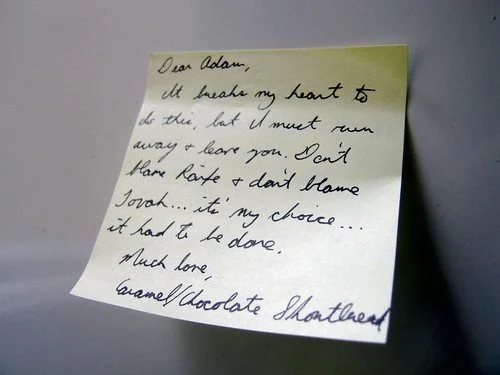 Dear Adam,
It breaks my heart to
do this, but I must run
away & leave you. Don't
blame Raife & don't blame
Tovah... it's my choice...
it had to be done.
Much love,
Caramel/Chocolate Shortbread